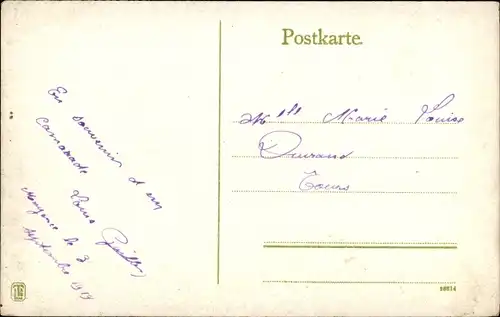 Postkarte.
En souvenir d'un
camarade
Louis
Mayence le 3
septembre 1919
Melle Marie Louise
Durand
Tours
16814